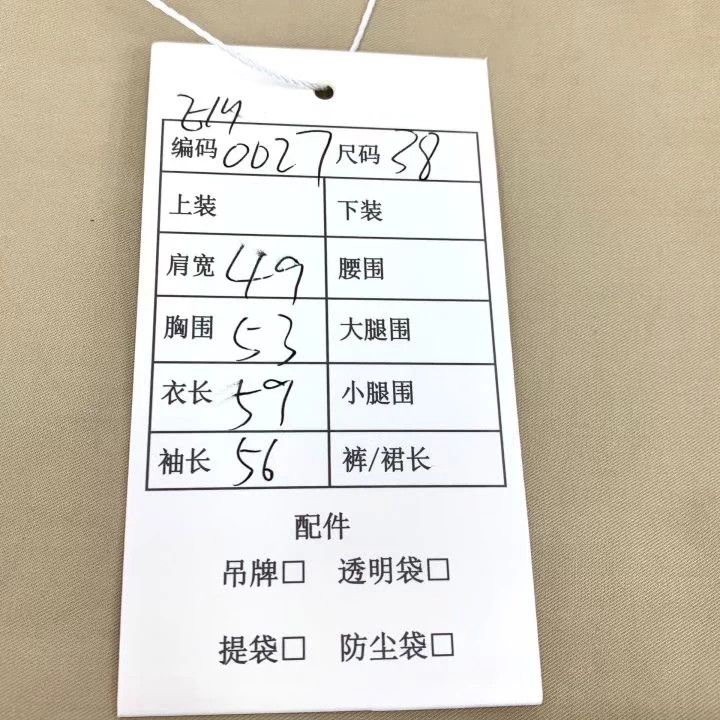 编码 0027 尺码 38
上装 下装
肩宽 49 腰围
胸围 53 大腿围
衣长 59 小腿围
袖长 56 裤/裙长
配件
吊牌□ 透明袋□
提袋□ 防尘袋□